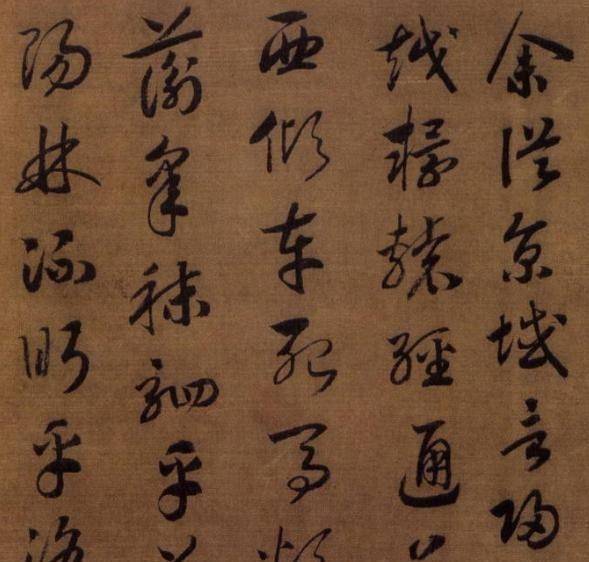 余從京域言歸
越轘轅經通
西傾車殆馬煩
蘅皋秣駟乎
陽林流眄乎洛